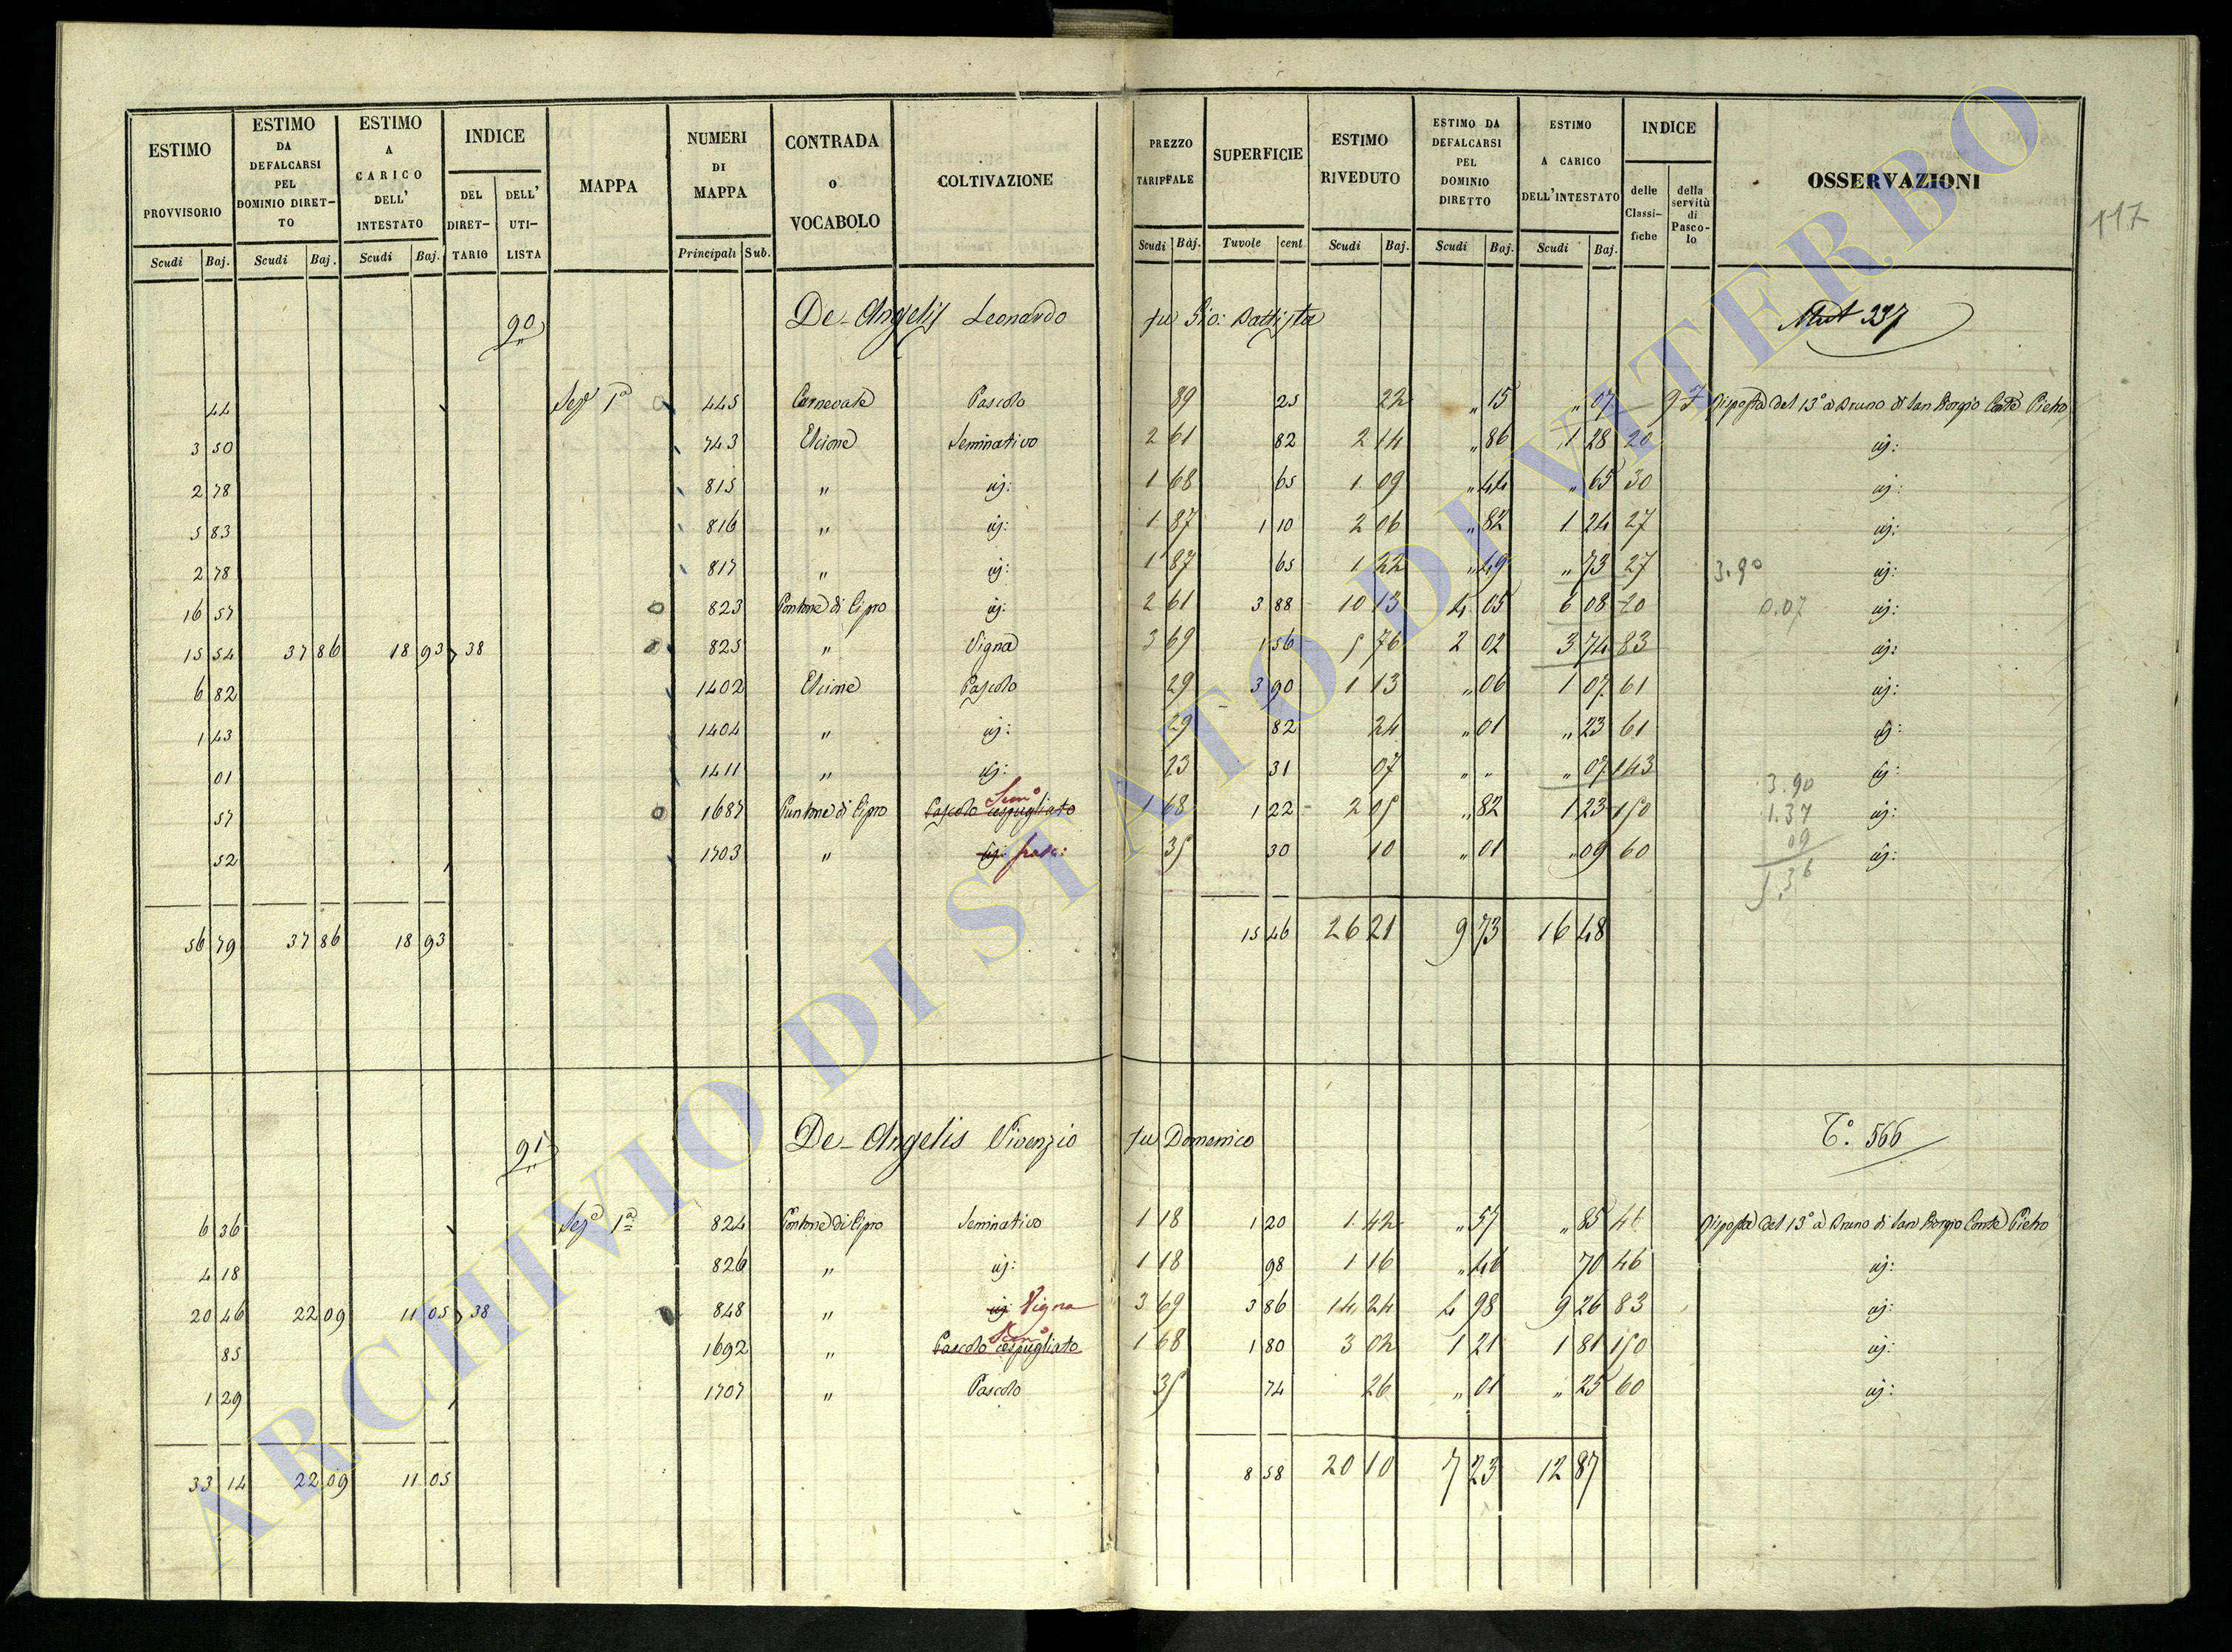 ESTIMO PROVVISORIO | ESTIMO DA DEFALCARSI PEL DOMINIO DIRET-TO | ESTIMO A CARICO DELL' INTESTATO | INDICE | MAPPA | NUMERI DI MAPPA | CONTRADA o VOCABOLO | COLTIVAZIONE | PREZZO TARIFFALE | SUPERFICIE | ESTIMO RIVEDUTO | ESTIMO DA DEFALCARSI PEL DOMINIO DIRETTO | ESTIMO A CARICO DELL'INTESTATO | INDICE | OSSERVAZIONI
DEL DIRET-TARIO | DELL' UTI-LISTA | delle Classi-fiche | della servitù di Pasco-lo
Scudi | Baj. | Scudi | Baj. | Scudi | Baj. | Principali | Sub. | Scudi | Baj. | Tavole | cent | Scudi | Baj. | Scudi | Baj. | Scudi | Baj.
117
90 De-Angelis Leonardo fu Gio: Battista Mut 337
44 Seze 1a 445 Carnevale Pascolo 89 25 22 " 15 " 07 97 Risposta del 13° a Bruno di San Giorgio Conte Pietro
3 50 743 Elcione Seminativo 2 61 82 2 14 " 86 1 28 20 iij:
2 78 815 " iij: 1 68 65 1 09 " 44 " 65 30 iij:
5 83 816 " iij: 1 87 1 10 2 06 " 82 1 24 27 iij:
2 78 817 " iij: 1 87 65 1 22 " 49 " 73 27 3.90 iij:
16 57 823 Pontone di Cipro iij: 2 61 3 88 10 13 4 05 6 08 20 0.07 iij:
15 54 37 86 18 93 38 825 " Vigna 3 69 1 56 5 76 2 02 3 74 83 iij:
6 82 1402 Elcione Pascolo 29 3 90 1 13 " 06 1 07 61 iij:
1 43 1404 " iij: 29 82 24 " 01 " 23 61 iij:
01 1411 " iij: 23 31 07 " " " 07 143 iij:
57 1687 Puntone di Cipro Pascolo cespugliato Semo 1 68 1 22 2 05 " 82 1 23 150 iij:
52 1703 " iij: pasc: 35 30 10 " 01 " 09 60 iij:
3.90
1.37
09
5.36
56 79 37 86 18 93 15 46 26 21 9 73 16 48
91 De-Angelis Vivenzio fu Domenico T.° 566
6 36 Seze 1a 824 Pontone di Cipro Seminativo 1 18 1 20 1 42 " 57 " 85 46 Risposta del 13° a Bruno di San Giorgio Conte Pietro
4 18 826 " iij: 1 18 98 1 16 " 46 70 46 iij:
20 46 22 09 11 05 38 848 " iij: Vigna 3 69 3 86 14 24 4 98 9 26 83 iij:
85 1692 " Pascolo cespugliato Semo 1 68 1 80 3 02 1 21 1 81 150 iij:
1 29 1707 " Pascolo 35 74 26 " 01 " 25 60 iij:
33 14 22 09 11 05 8 58 20 10 7 23 12 87
ARCHIVIO DI STATO DI VITERBO